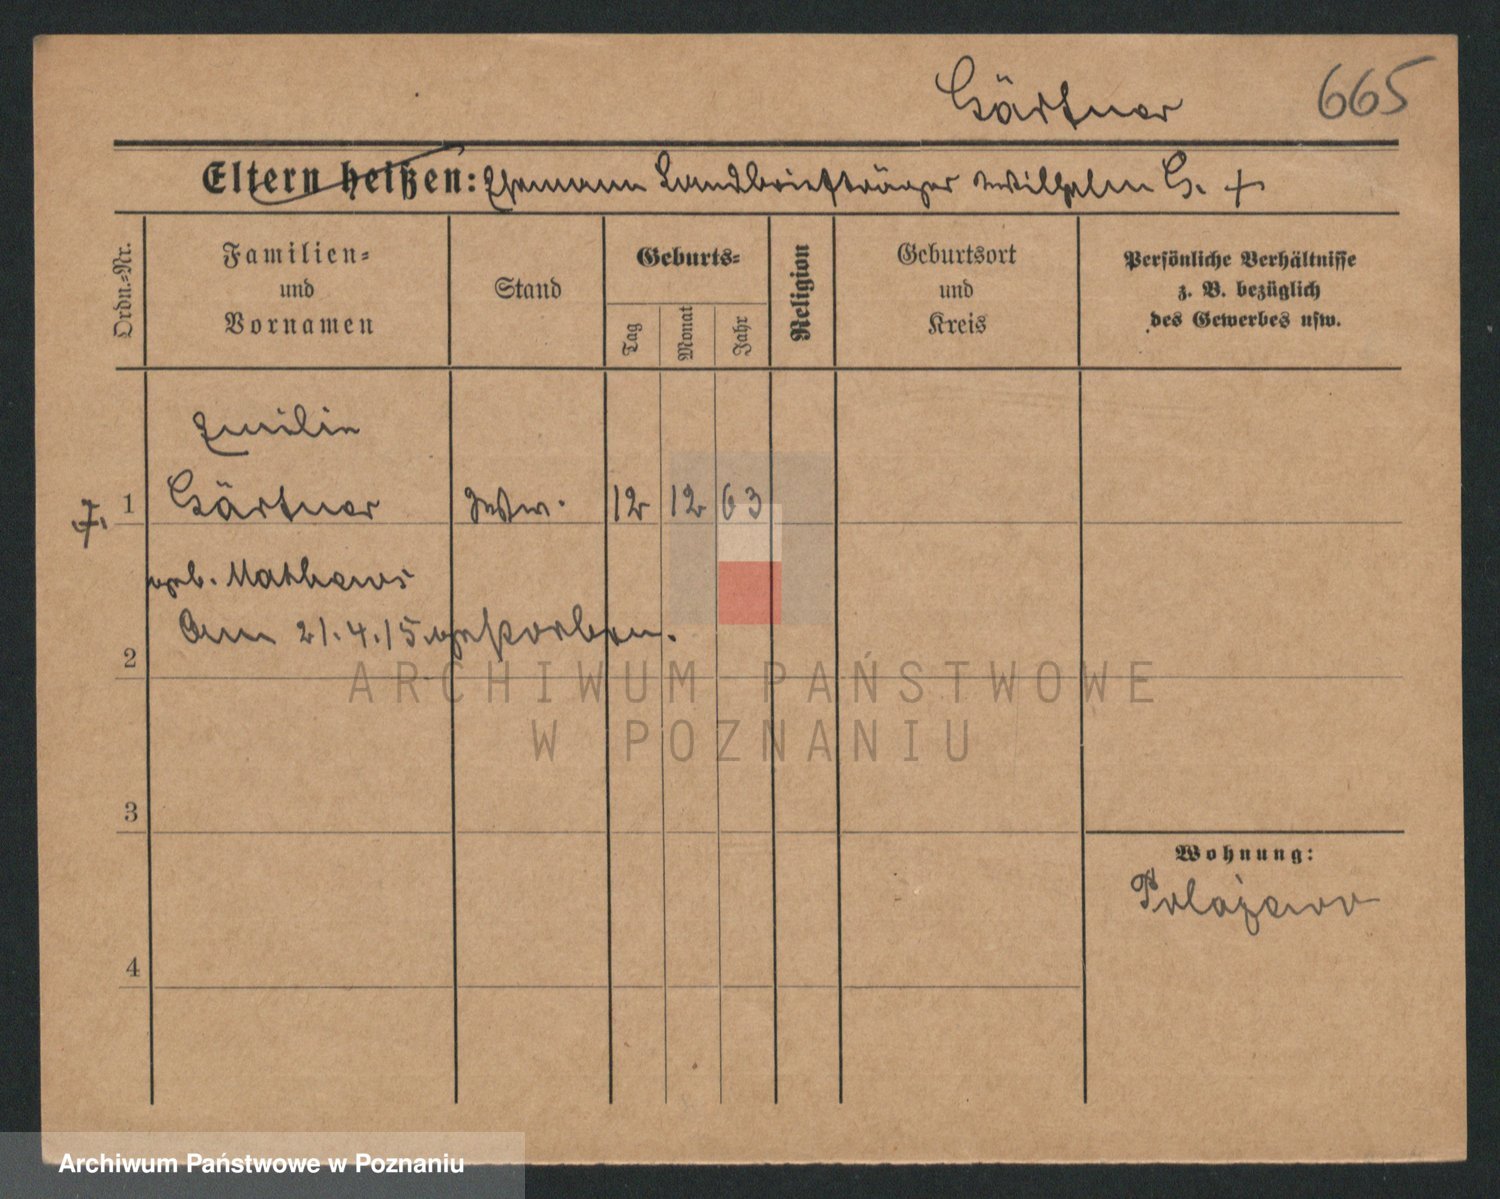 Gärtner
665
Eltern heißen: Ehemann Landbriefträger Wilhelm G. +
Ordn.-Nr.
Familien-
und
Vornamen
Stand
Geburts-
Tag
Monat
Jahr
Religion
Geburtsort
und
Kreis
Persönliche Verhältnisse
z. B. bezüglich
des Gewerbes usw.
Emilie
1 Gärtner Wtw. 12 12 63
geb. Mathews
2 Am 21.4.15 gestorben.
3
4
Wohnung:
Polajewo
ARCHIWUM PAŃSTWOWE
W POZNANIU
Archiwum Państwowe w Poznaniu